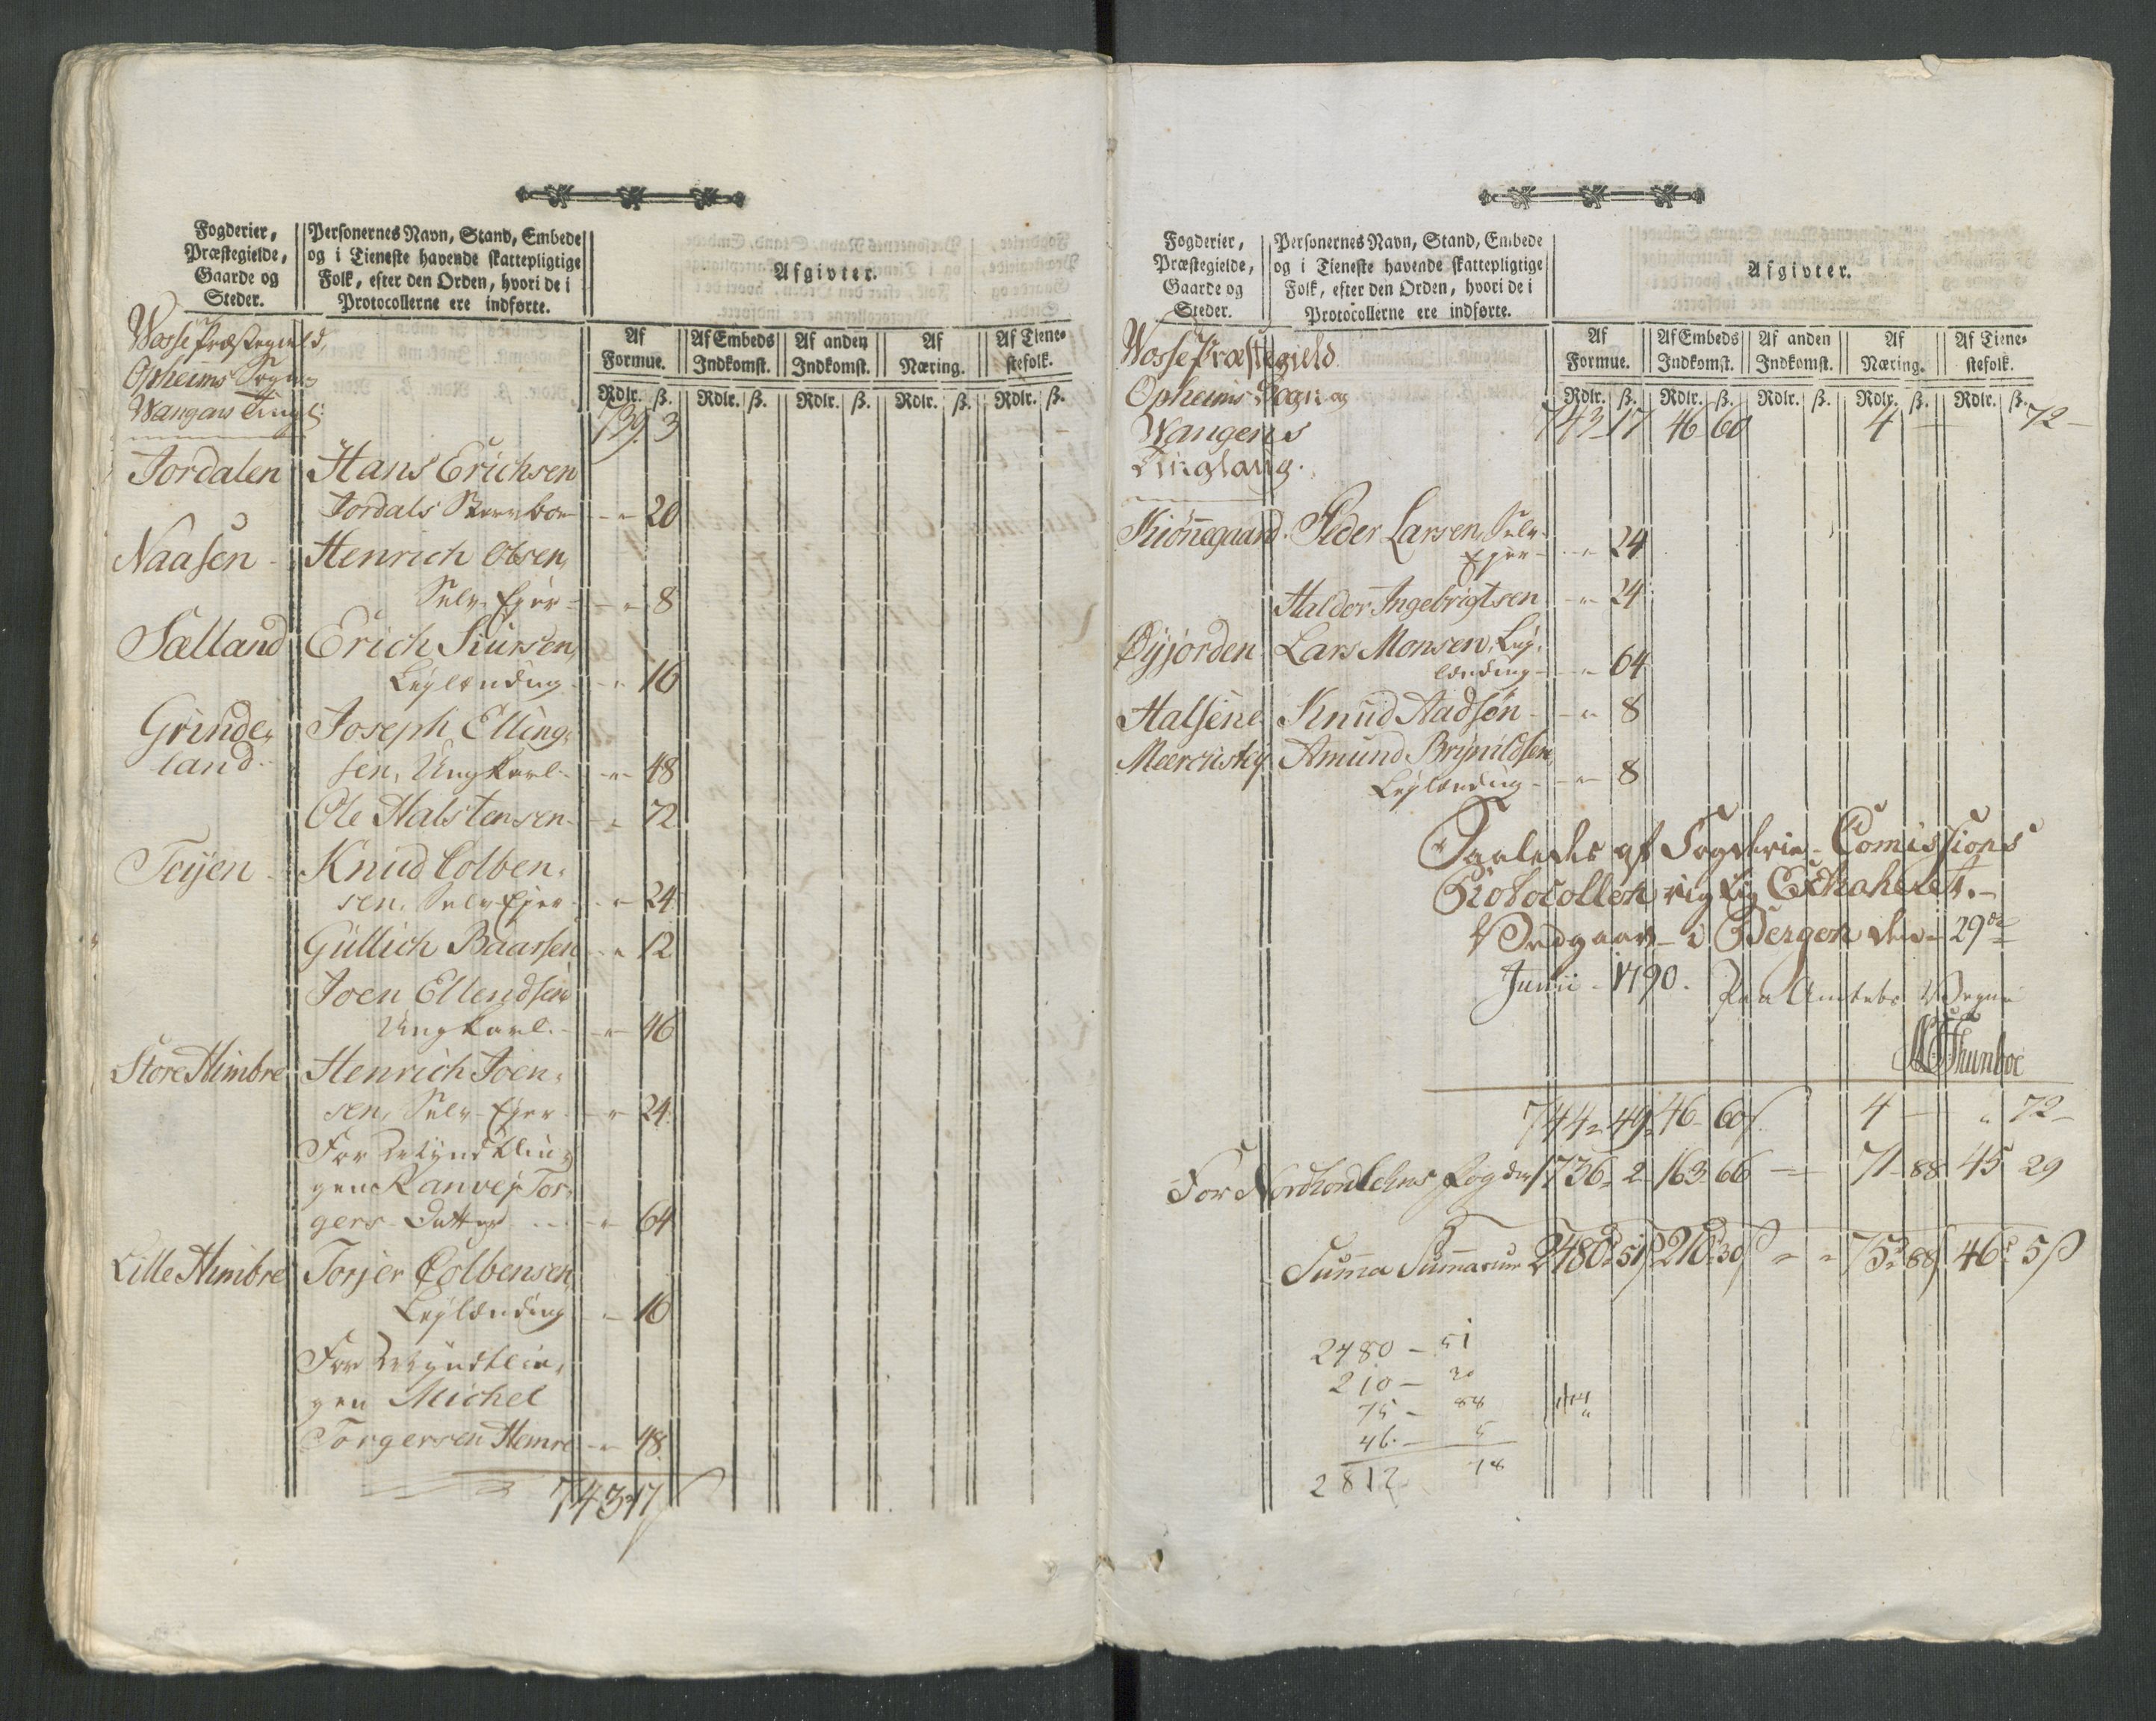 Fogderier,
Præstegielde,
Gaarde og
Steder.
Personernes Navn, Stand, Embede
og i Tieneste havende skattepligtige
Folk, efter den Orden, hvori de i
Protocollerne ere indførte.
Afgivter.
Af Formue. Af Embeds Indkomst. Af anden Indkomst. Af Næring. Af Tiene- stefolk.
Rdlr. ß. Rdlr. ß. Rdlr. ß. Rdlr. ß. Rdlr. ß.
Wosse Præstegield,
Opheims Sogn
Wangens Tingl:
739 3
Jordalen Hans Erichsen
Jordals - " 20
Naasen - Henrich Olsen,
Selv-Ejer - - " 8
Sælland Erich Siursen,
Leylænding - - " 16
Grinde- Joseph Elling-
land - sen, Ungkarl - - " 48
Ole Halstensen - - " 72
Tvjen - Knud Colben-
sen, Selv-Ejer - - " 24
Gullich Baarsen - " 12
Joen Ellendsen
Ungkarl. - - " 46
Store Himbre Henrich Joen-
sen, Selv-Ejer - - " 24
For Myndtlin-
gen Ranvey Tor-
gers-Datter - - " 64
Lille Himbre Torjer Colbensen,
Leylænding - " 16
For Myndtlin-
gen Michel
Torgersen Hemre - " 48
743 17
Fogderier,
Præstegielde,
Gaarde og
Steder.
Personernes Navn, Stand, Embede
og i Tieneste havende skattepligtige
Folk, efter den Orden, hvori de i
Protocollerne ere indførte.
Afgivter.
Af Formue. Af Embeds Indkomst. Af anden Indkomst. Af Næring. Af Tiene- stefolk.
Rdlr. ß. Rdlr. ß. Rdlr. ß. Rdlr. ß. Rdlr. ß.
Wosse Præstegield
Opheims Sogn og
Wangens
Tinglaug.
743 17 46 60 4 - 72 -
Kiönnegaard Peder Larsen, Selv-
Ejer - - " 24
Haldor Ingebrigtsen - " 24
Øyjorden Lars Monsen, Ley-
lænding - - " 64
Halsene Knud Aadsön - - " 8
Meeraskj Amund Brynildsen
Leylænding - - " 8
Saaledes af Fogderie-Comissions
Protocollen rigtig Extraheret. -
i Bergen den 29de
Junii - 1790. Paa Amtets Vegne
744 " 49 46 60 4 - " 72 -
For Nordhordlehns Fogderi 1736 " 2 163 66 - - 71 - 88 45 29
Summa Summarum 2480 51 210 30 " " 75 88 46 5
2480 - 51
210 - 30
75 - 88
46 - 5
2812 78